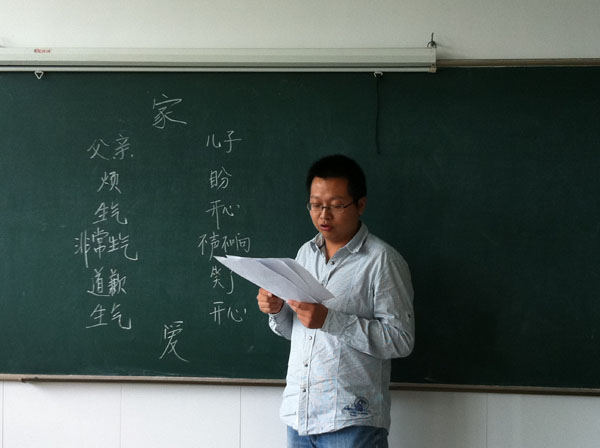 家
父亲 儿子
烦 盼
生气 开心
非常生气 不声不响
道歉 笑了
生气 开心
爱